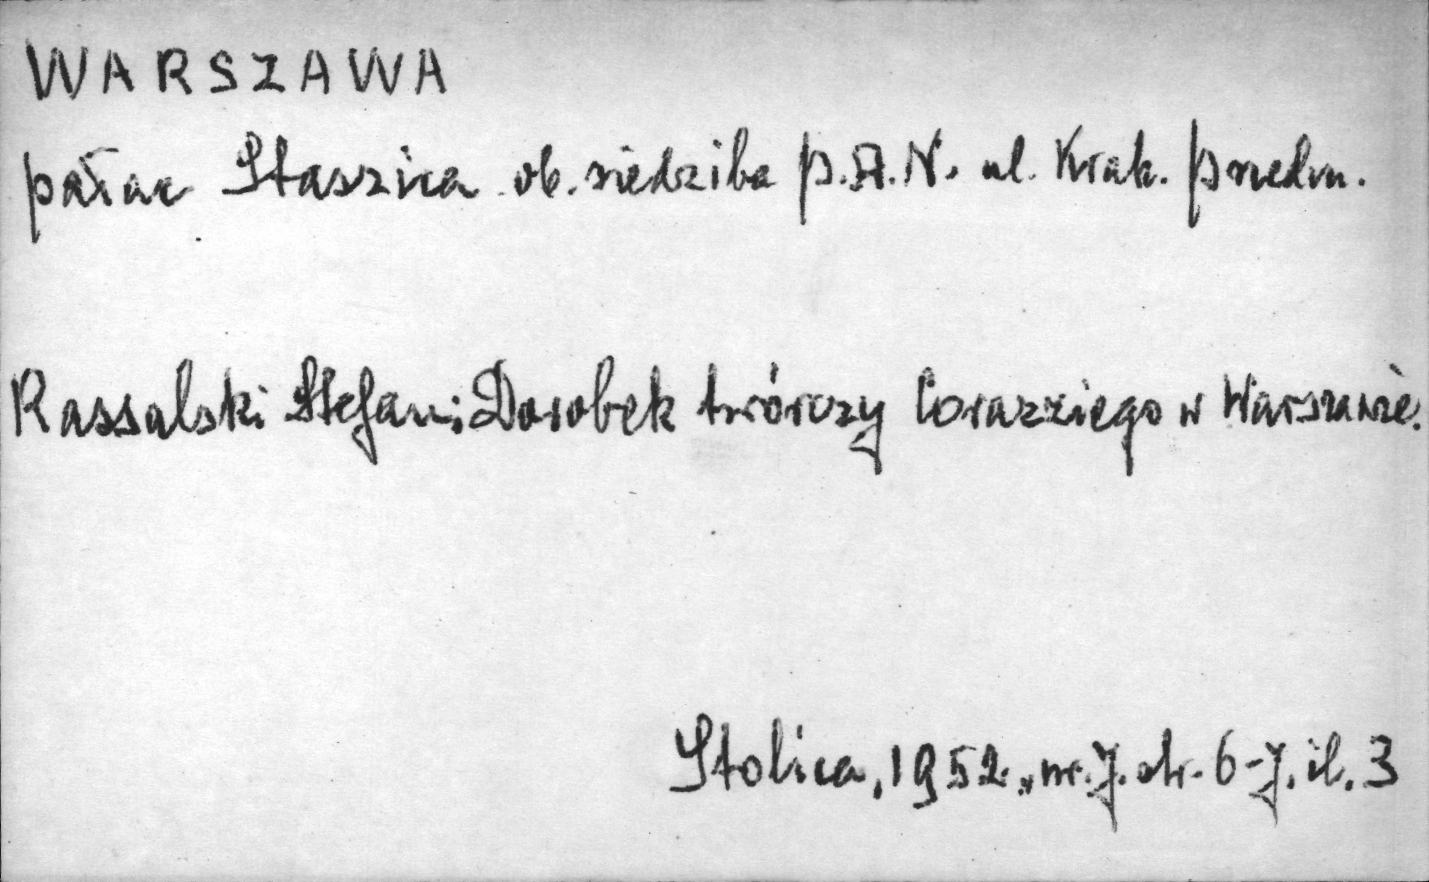 WARSZAWA
pałac Staszica ob. siedziba P.A.N. ul. Krak. Przedm.
Rassalski Stefan; Dorobek twórczy Corazziego w Warszawie.
Stolica, 1952., nr. 7. str. 6-7. il. 3